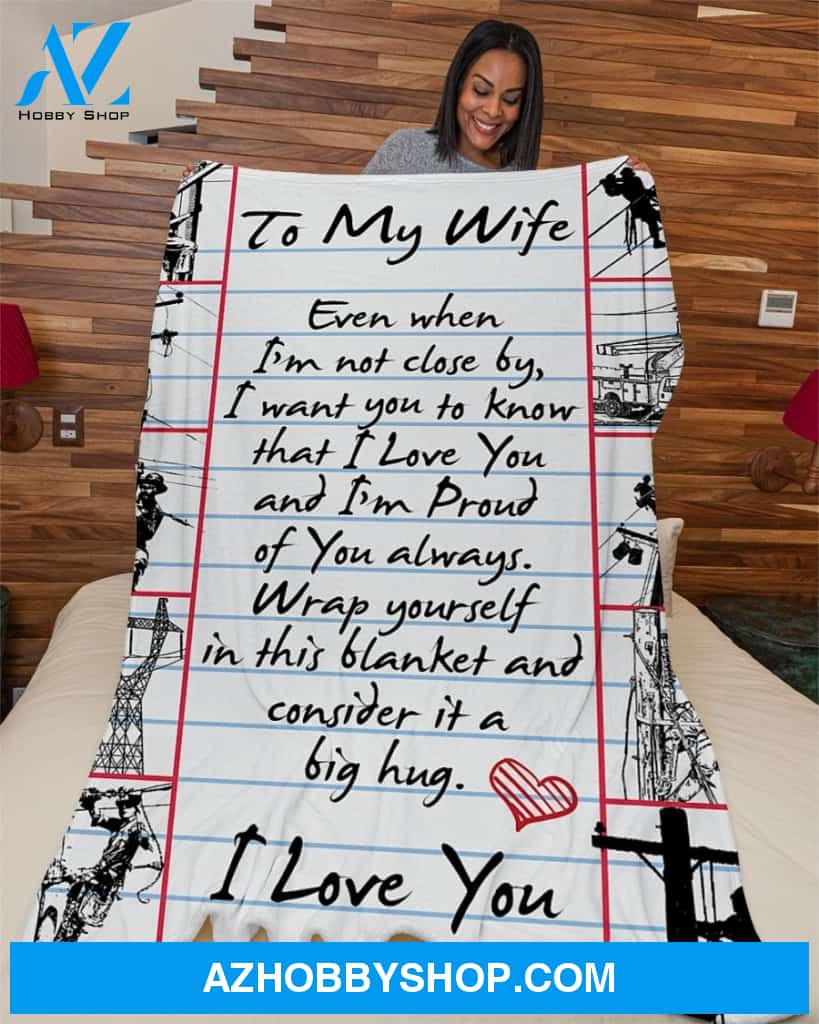 AZ
HOBBY SHOP
To My Wife
Even when
I'm not close by,
I want you to know
that I Love You
and I'm Proud
of You always.
Wrap yourself
in this blanket and
consider it a
big hug.
I Love You
AZHOBBYSHOP.COM